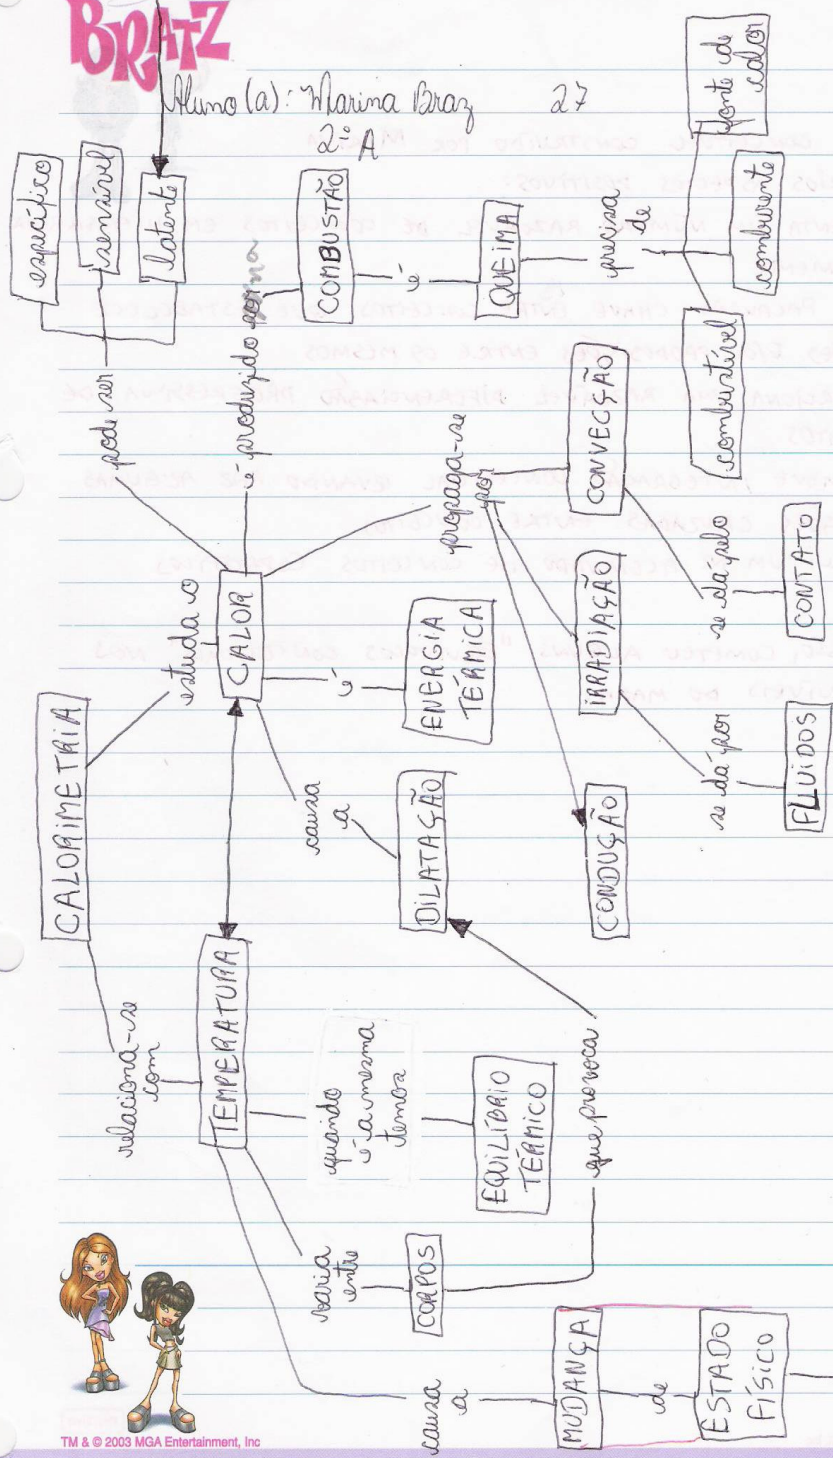 BRATZ
Aluno(a): Marina Braz 27
2º A
CALORIMETRIA
relaciona-se
com
estuda o
TEMPERATURA
CALOR
pode ser
específico
sensível
latente
é produzido
COMBUSTÃO
é
QUEIMA
precisa
de
combustível
comburente
fonte de
calor
propaga-se
por
CONVECÇÃO
IRRADIAÇÃO
CONDUÇÃO
se dá pelo
CONTATO
se dá por
FLUIDOS
é
ENERGIA
TÉRMICA
causa
a
DILATAÇÃO
quando
é a mesma
temos
EQUILÍBRIO
TÉRMICO
varia
entre
CORPOS
que provoca
causa
a
MUDANÇA
de
ESTADO
FÍSICO
TM & © 2003 MGA Entertainment, Inc